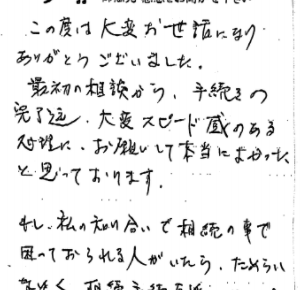 この度は大変お世話になり
ありがとうございました。
最初の相談から、手続きの
完了迄、大変スピード感のある
対応に、お願いして本当によかった
と思っております。
もし、私の知り合いで相続の事で
困っておられる人がいたら、ためらい
なく、相続手続